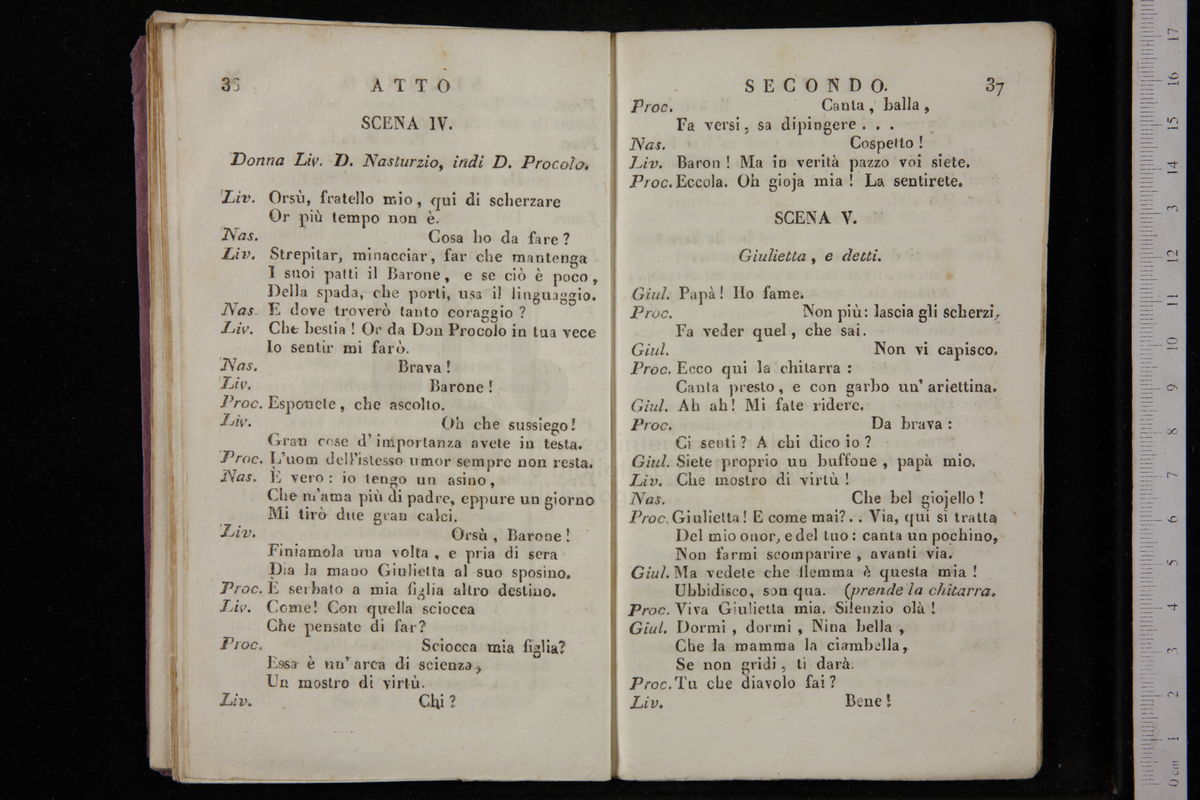 36 ATTO
SCENA IV.
Donna Liv. D. Nasturzio, indi D. Procolo.
Liv. Orsù, fratello mio, qui di scherzare
Or più tempo non è.
Nas. Cosa ho da fare?
Liv. Strepitar, minacciar, far che mantenga
I suoi patti il Barone, e se ciò è poco,
Della spada, che porti, usa il linguaggio.
Nas. E dove troverò tanto coraggio?
Liv. Che bestia! Or da Don Procolo in tua vece
Io sentir mi farò.
Nas. Brava!
Liv. Barone!
Proc. Esponete, che ascolto.
Liv. Oh che sussiego!
Gran cose d'importanza avete in testa.
Proc. L'uom dell'istesso umor sempre non resta.
Nas. È vero: io tengo un asino,
Che m'ama più di padre, eppure un giorno
Mi tirò due gran calci.
Liv. Orsù, Barone!
Finiamola una volta, e pria di sera
Dia la mano Giulietta al suo sposino.
Proc. È serbato a mia figlia altro destino.
Liv. Come! Con quella sciocca
Che pensate di far?
Proc. Sciocca mia figlia?
Essa è un'arca di scienza,
Un mostro di virtù.
Liv. Chi?
SECONDO. 37
Proc. Canta, balla,
Fa versi, sa dipingere . . .
Nas. Cospetto!
Liv. Baron! Ma in verità pazzo voi siete.
Proc. Eccola. Oh gioja mia! La sentirete.
SCENA V.
Giulietta, e detti.
Giul. Papà! Ho fame.
Proc. Non più: lascia gli scherzi,
Fa veder quel, che sai.
Giul. Non vi capisco.
Proc. Ecco qui la chitarra:
Canta presto, e con garbo un'ariettina.
Giul. Ah ah! Mi fate ridere.
Proc. Da brava:
Ci senti? A chi dico io?
Giul. Siete proprio un buffone, papà mio.
Liv. Che mostro di virtù!
Nas. Che bel giojello!
Proc. Giulietta! E come mai? . . Via, qui si tratta
Del mio onor, e del tuo: canta un pochino,
Non farmi scomparire, avanti via.
Giul. Ma vedete che flemma è questa mia!
Ubbidisco, son qua. (prende la chitarra.
Proc. Viva Giulietta mia. Silenzio olà!
Giul. Dormi, dormi, Nina bella,
Che la mamma la ciambella,
Se non gridi, ti darà.
Proc. Tu che diavolo fai?
Liv. Bene!
0 cm 1 2 3 4 5 6 7 8 9 10 11 12 13 14 15 16 17